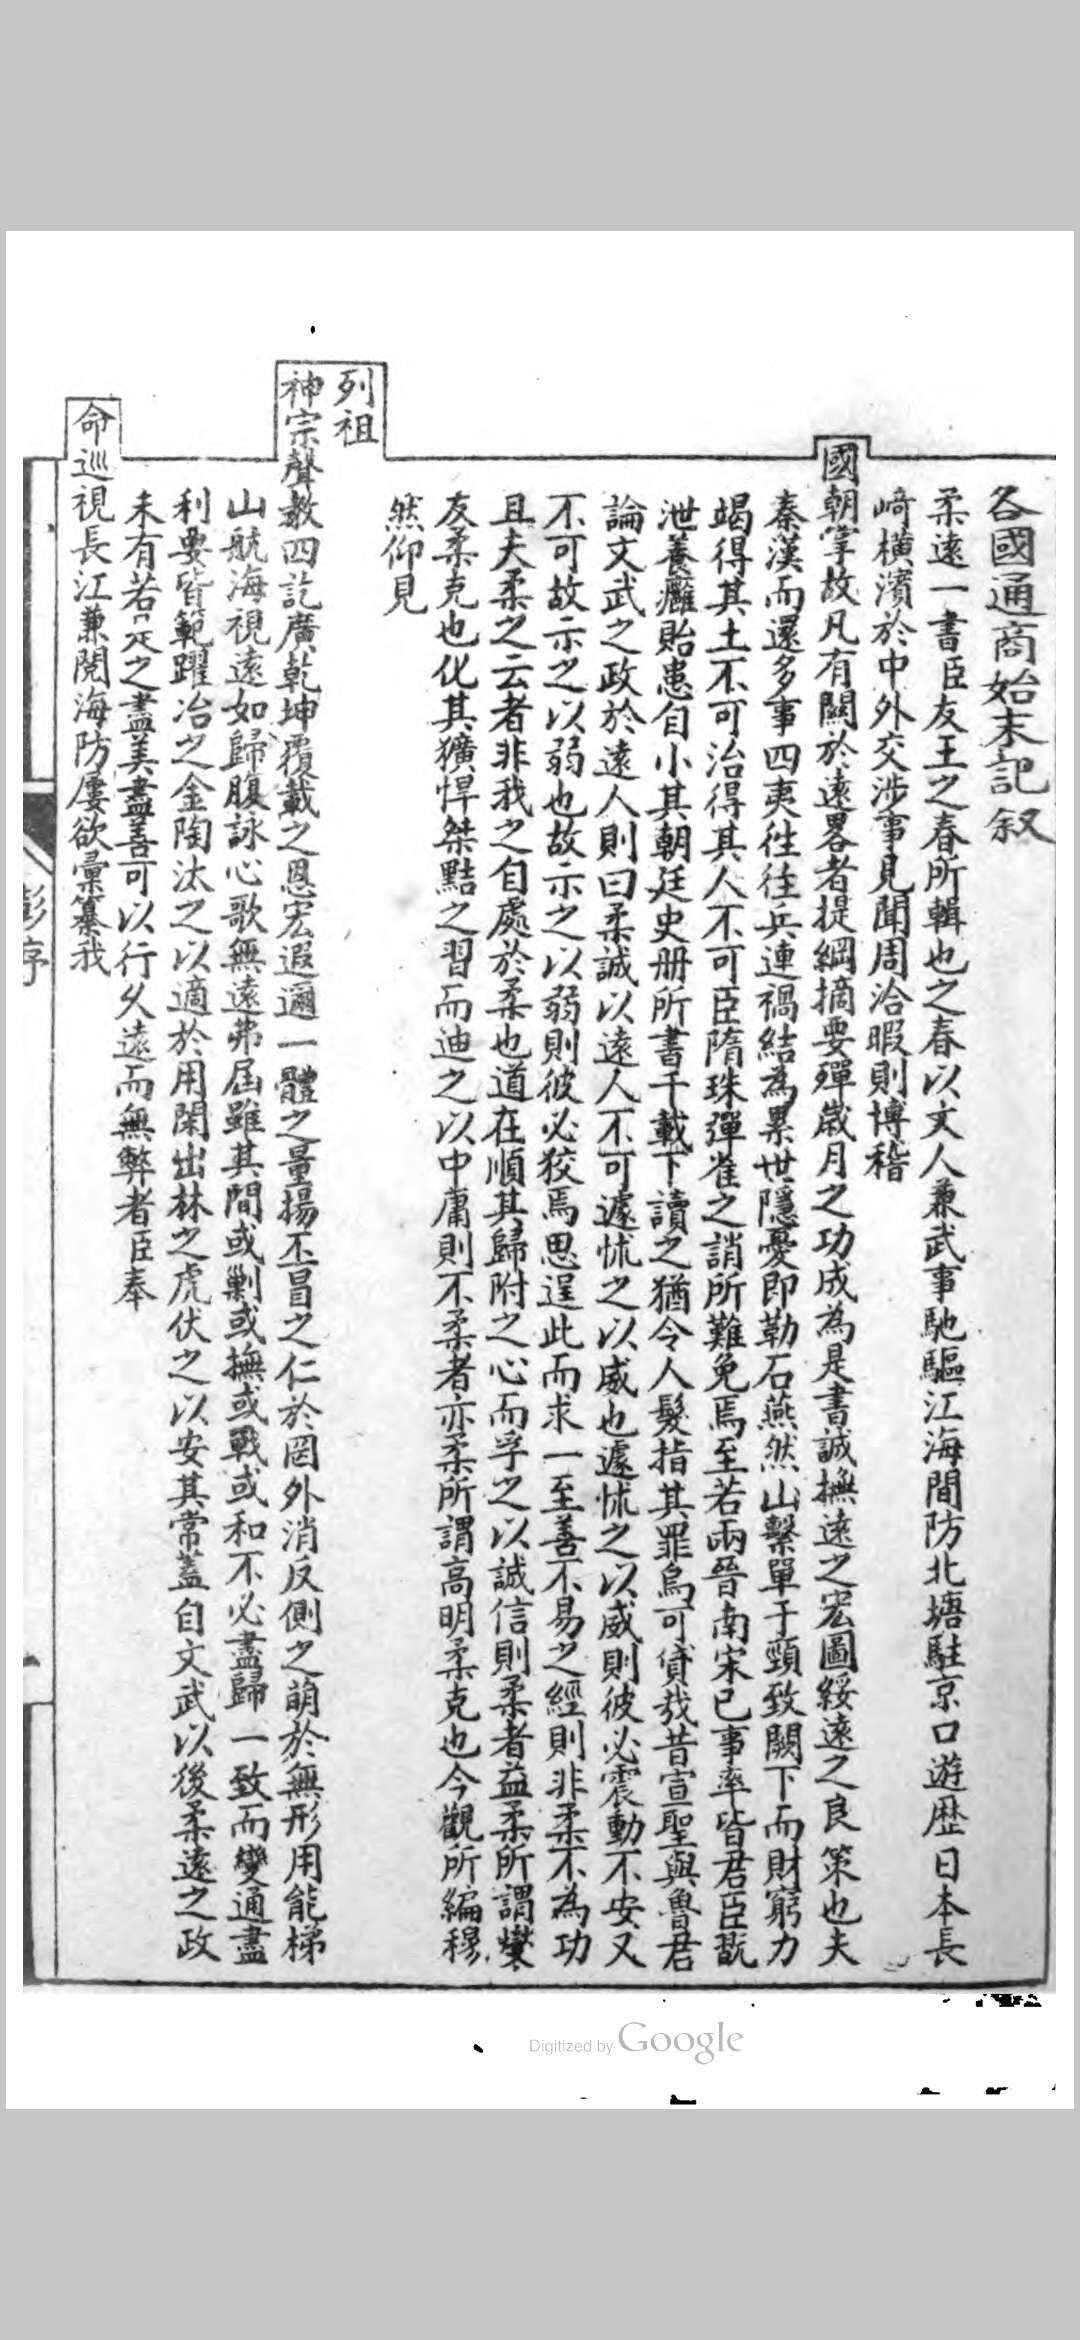 各國通商始末記叙
柔遠一書臣友王之春所輯也之春以文人兼武事馳驅江海間防北塘駐京口遊歷日本長
崎橫濱於中外交涉事見聞周洽暇則博稽
國朝掌故凡有關於遠畧者提綱摘要殫歲月之功成為是書誠撫遠之宏圖綏遠之良策也夫
秦漢而還多事四夷往往兵連禍結為累世隱憂即勒石燕然山繫單于頸致闕下而財窮力
竭得其土不可治得其人不可臣隋珠彈雀之誚所難免焉至若兩晉南宋已事率皆君臣翫
泄養癰貽患自小其朝廷史册所書千載下讀之猶令人髮指其罪烏可貸哉昔宣聖與魯君
論文武之政於遠人則曰柔誠以遠人不可遽怵之以威也遽怵之以威則彼必震動不安又
不可故示之以弱也故示之以弱則彼必狡焉思逞此而求一至善不易之經則非柔不為功
且夫柔之云者非我之自處於柔也道在順其歸附之心而孚之以誠信則柔者益柔所謂燮
友柔克也化其獷悍桀黠之習而迪之以中庸則不柔者亦柔所謂高明柔克也今觀所編穆
然仰見
列祖
神宗聲教四訖廣乾坤覆載之恩宏遐邇一體之量揚丕冒之仁於罔外消反側之萌於無形用能梯
山航海視遠如歸腹詠心歌無遠弗屆雖其間或剿或撫或戰或和不必盡歸一致而變通盡
利要皆範躍冶之金陶汰之以適於用閑出林之虎伏之以安其常蓋自文武以後柔遠之政
未有若之盡美盡善可以行久遠而無弊者臣奉
命巡視長江兼閱海防屢欲彙纂我
彭序
Digitized by Google